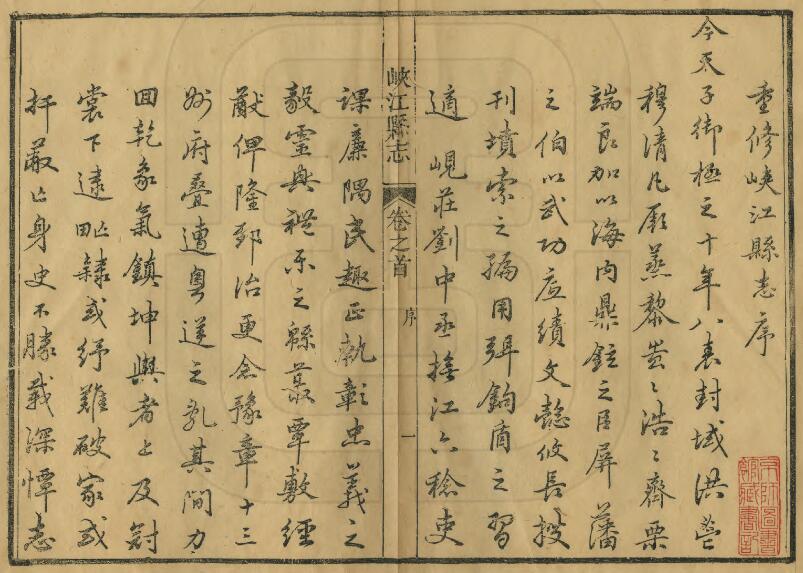 重修峽江縣志序
今天子御極之十年八表封域洪營
穆清凡厥蒸黎蚩〻浩〻齊栗
端良加以海內鼎鉉之臣屏藩
之伯以武功益績文懿攸長披
刊墳索之編用弭鉤商之習
適峴莊劉中丞撫江六稔吏
峽江縣志 卷之首 序 一
課廉隅民趣正執彰忠義之
毅靈與禮樂之縣蕞覃敷經
猷俾隆郅治更念豫章十三
州府疊遭粵逆之乳其間力
回乾象氣鎮坤輿者上及封
裳下逮氓隸或紓難破家或
扞蔽亡身史不勝載深憚志